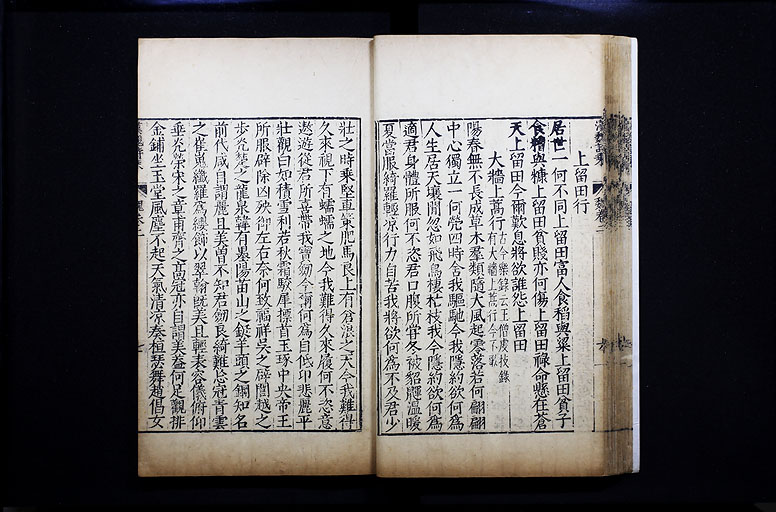 上留田行
居世一何不同上留田富人食稻與粱上留田貧子
食糟與糠上留田貧賤亦何傷上留田祿命懸在蒼
天上留田今爾歎息將欲誰怨上留田
大牆上蒿行
古今樂錄云王僧虔技錄
有大牆上蒿行今不歌
陽春無不長成草木羣類隨大風起零落若何翩翩
中心獨立一何煢四時舍我驅馳今我隱約欲何爲
人生居天壤間忽如飛鳥棲枯枝我今隱約欲何爲
適君身體所服何不恣君口腹所嘗冬被貂鼲溫暖
夏當服綺羅輕凉行力自苦我將欲何爲不及君少
壯之時乘堅車策肥馬良上有倉浪之天今我難得
久來視下有蠕蠕之地今我難得久來履何不恣意
遨遊從君所喜帶我寶劒今爾何爲自低卬悲麗平
壯觀白如積雪利若秋霜駮犀標首玉琢中央帝王
所服辟除凶殃御左右奈何致福祥吳之辟閭越之
步光楚之龍泉韓有墨陽苗山之鋌羊頭之鋼知名
前代咸自謂麗且美曾不知君劒良綺難忘冠青雲
之崔嵬纖羅爲纓飾以翠翰旣美且輕表容儀俯仰
垂光榮宋之章甫齊之高冠亦自謂美蓋何足觀排
金鋪坐玉堂風塵不起天氣清凉奏桓瑟舞趙倡女